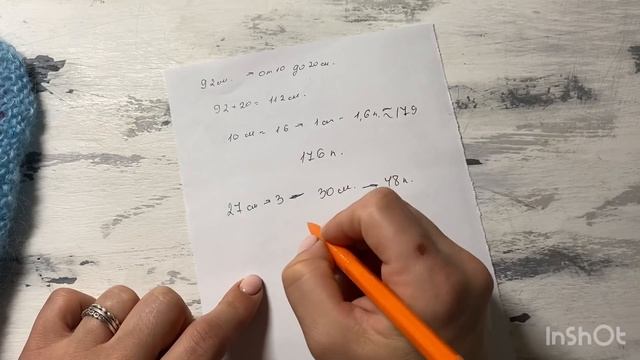 92 см. → от 10 до 20 см.
92 + 20 = 112 см.
10 см = 16 → 1 см - 1,6 п. ≈ 179
176 п.
27 см → 3 - 30 см. → 48 п.
InShOt